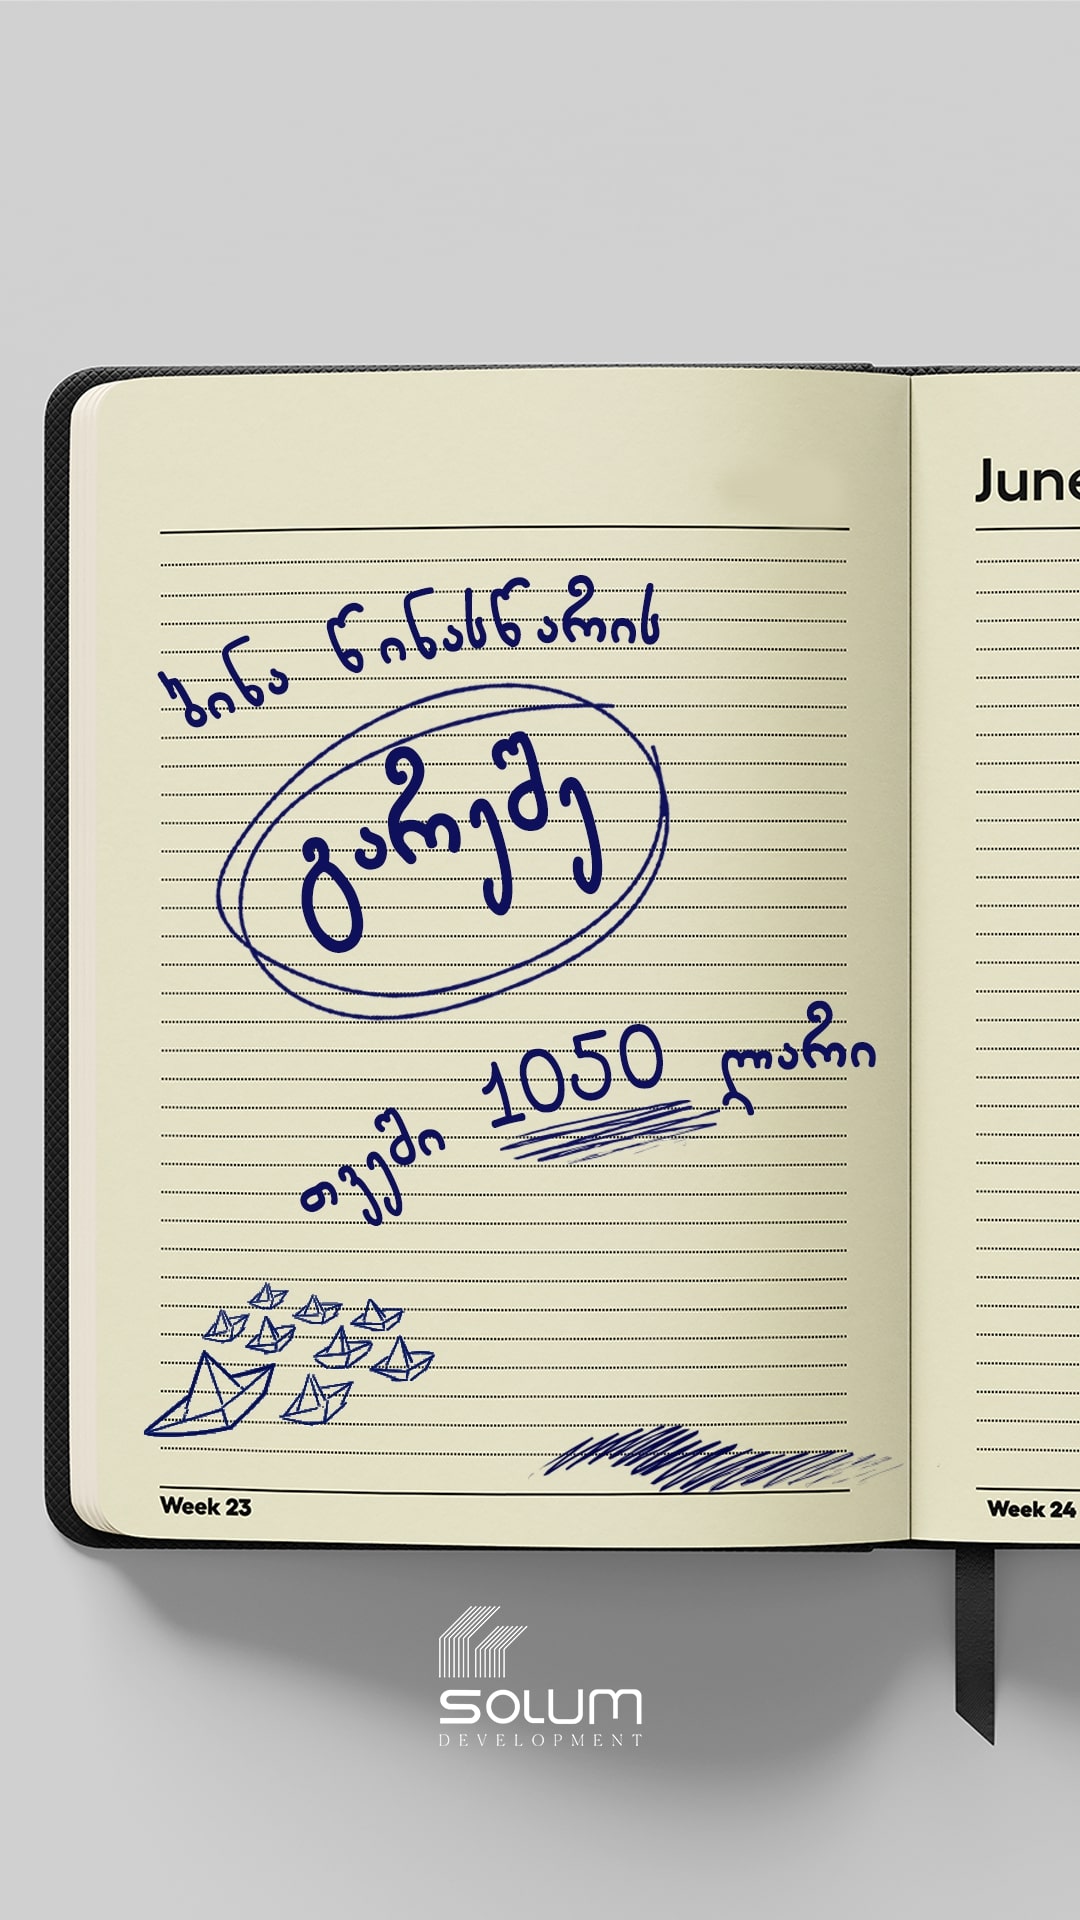 ბინა წინასწარის
გარეშე
თვეში 1050 ლარი
June
Week 23
Week 24
SOLUM
DEVELOPMENT